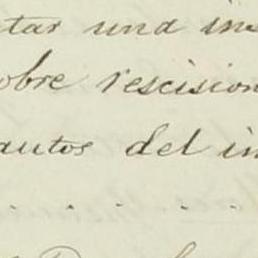 tar una ins
obre rescision
autos del in